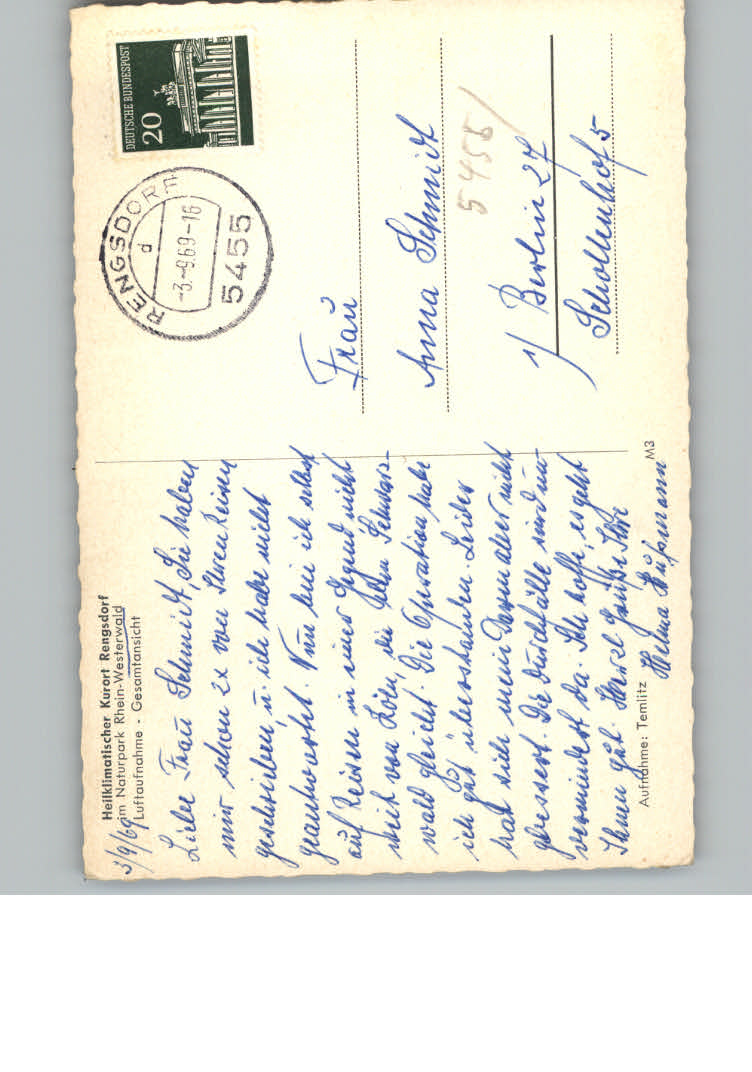 Heilklimatischer Kurort Rengsdorf
im Naturpark Rhein-Westerwald
Luftaufnahme - Gesamtansicht
3/9/69
Liebe Frau Schmidt, Sie haben
mir schon 2x von Ihren Reisen
geschrieben, u. ich habe nicht
geantwortet. Nun bin ich selbst
auf Reisen in einer Gegend nicht
weit von Köln, die dem Schwarz-
wald gleicht. Die Operation habe
ich gut überstanden. Leider
hat sich mein Darm aber nicht
gebessert. Die Durchfälle sind un-
vermindert da. Ich hoffe, es geht
Ihnen gut. Herzl. Grüße Ihre
Helma Hußmann
Aufnahme: Temlitz
M3
DEUTSCHE BUNDESPOST
20
RENGSDORF
d
-3.-9.69-16
5455
Frau
Anna Schmidt
5455/
1/ Berlin 27
Schollenhof 5